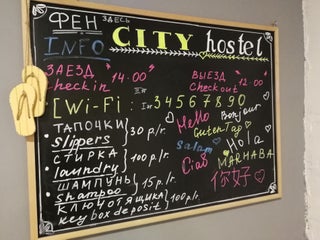 ФЕН ЗДЕСЬ
INFO
CITY hostel
ЗАЕЗД "14:00"
Check in
ВЫЕЗД "12:00"
Check out
[Wi-Fi: 1эт 2эт 34567890
ТАПОЧКИ
slippers
30 р/г.
СТИРКА
laundry
100 р/г.
ШАМПУНЬ
shampoo
15 р/г.
КЛЮЧ ОТ ЯЩИКА
key box deposit
100 р/г.
Hello
Bonjour
Guten Tag
Salam
Hola
Ciao
MARHABA
你好